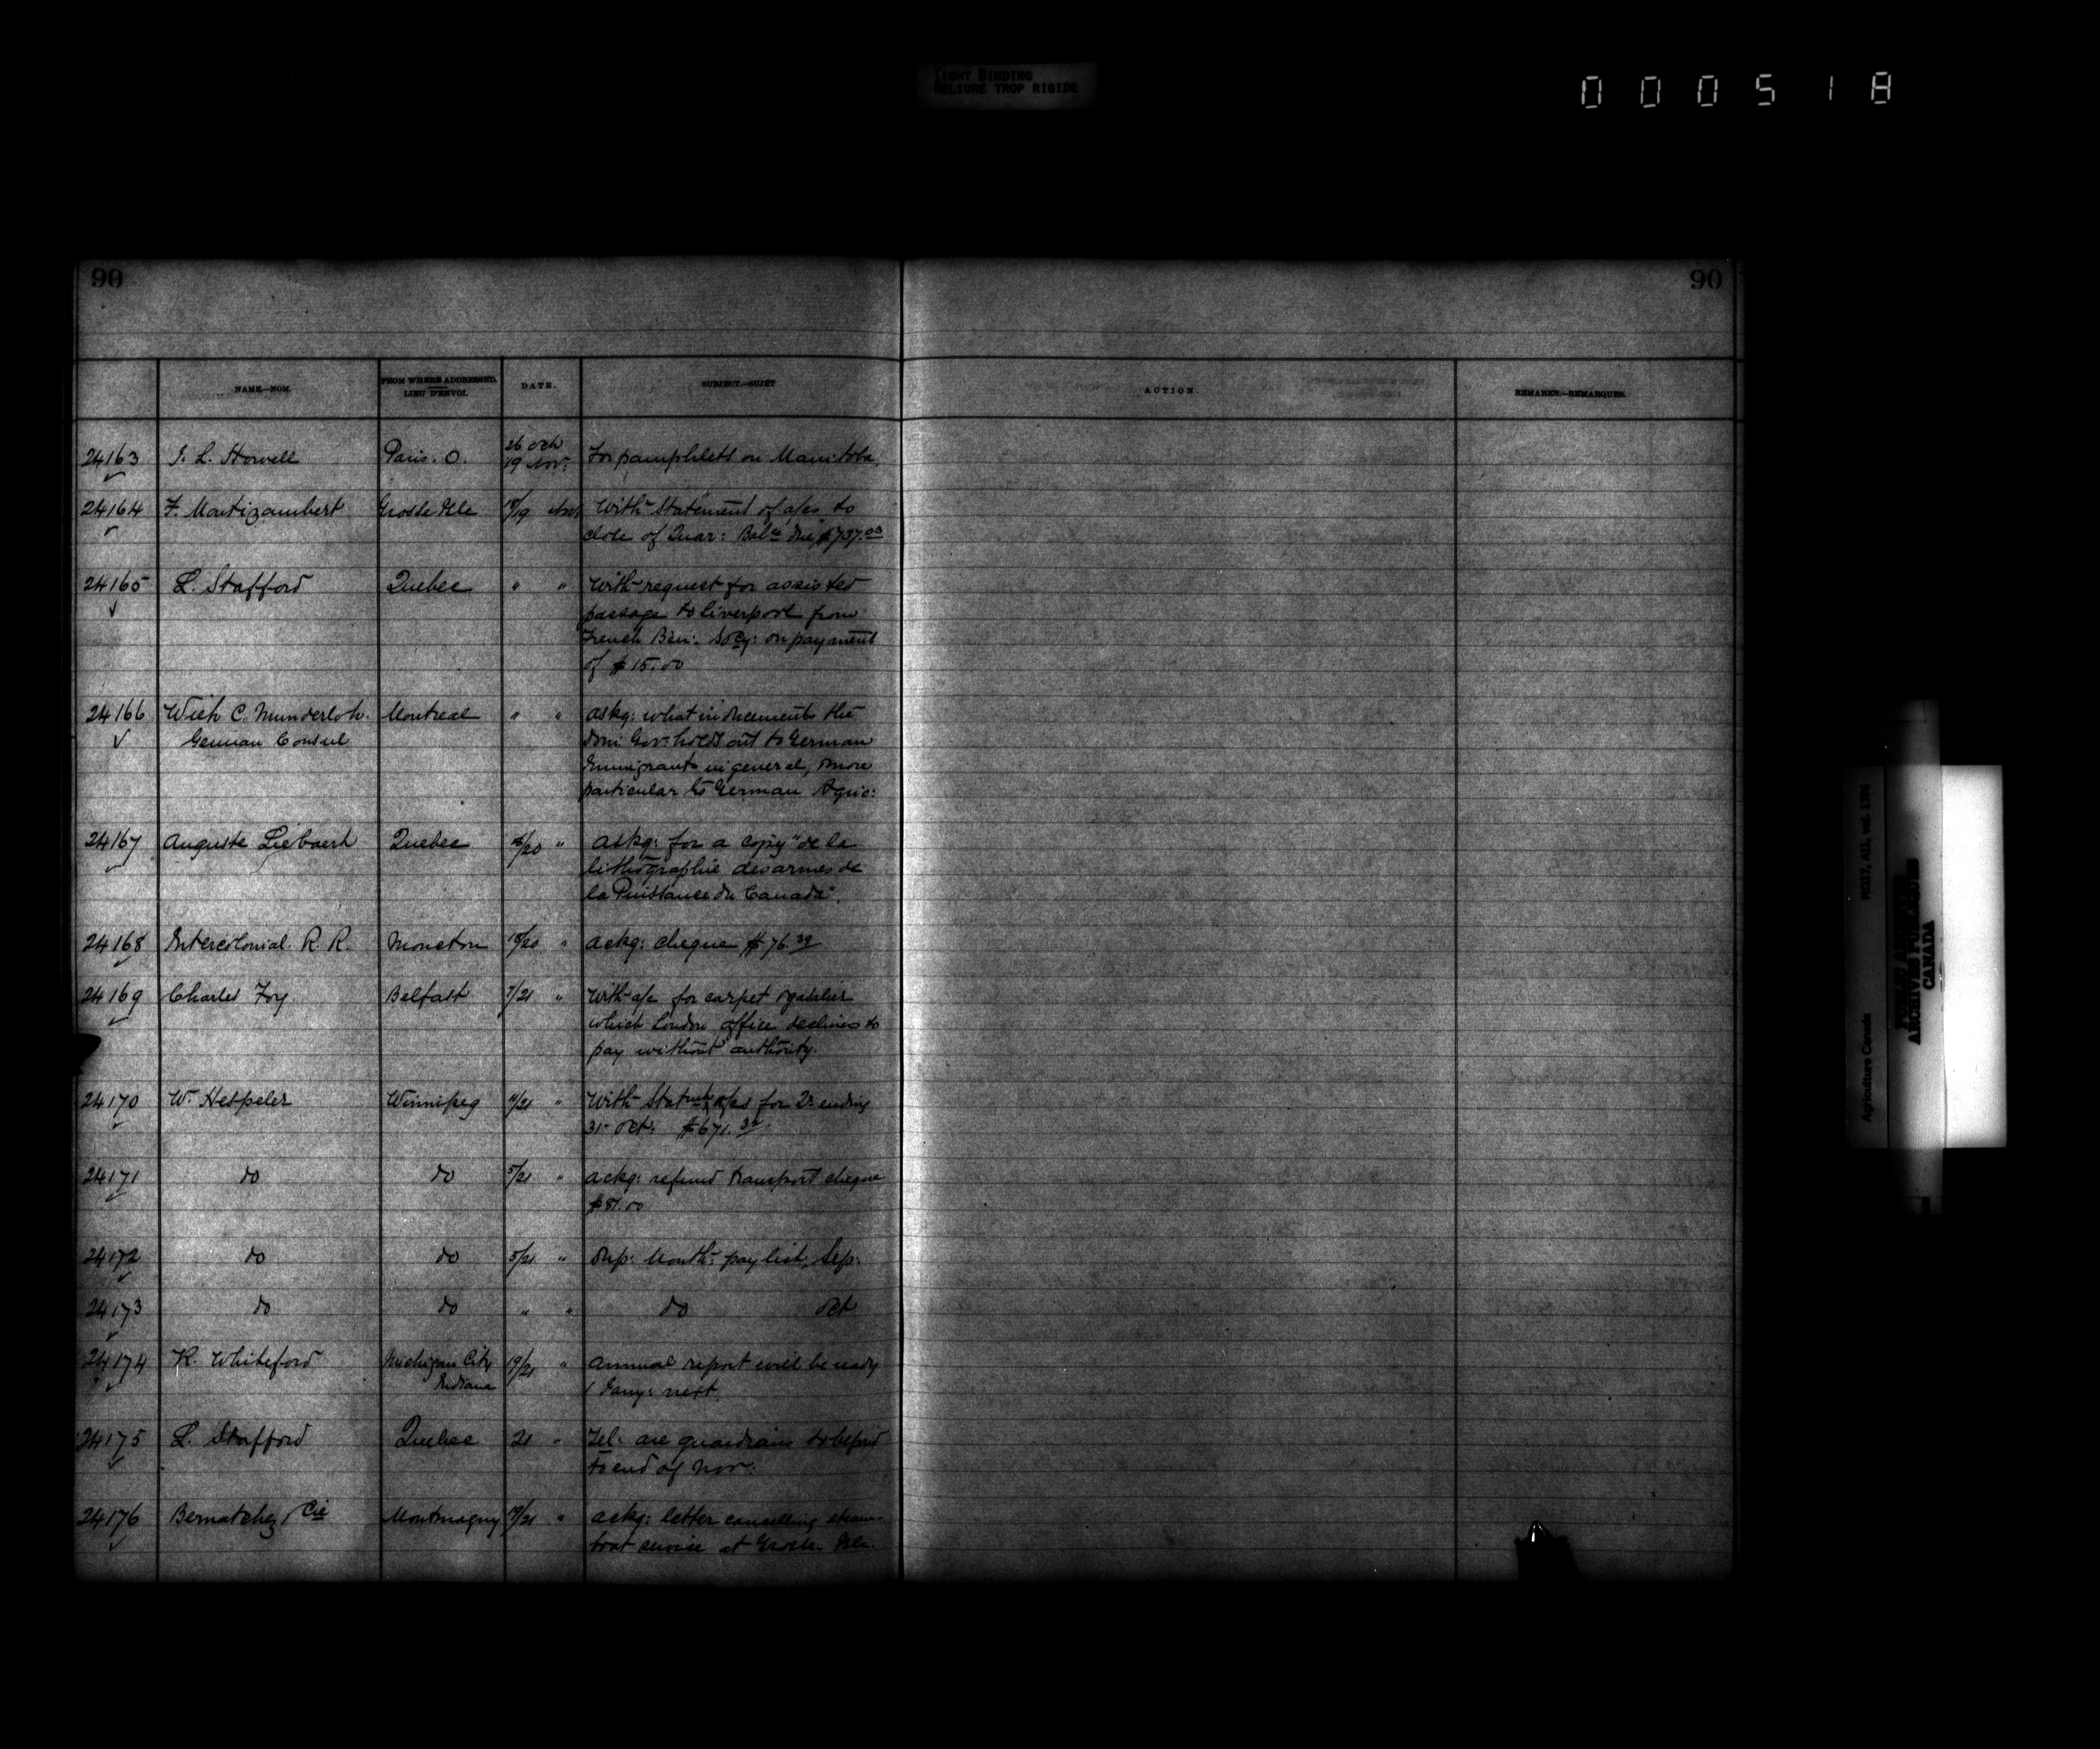 TIGHT BINDING
RELIURE TROP RIGIDE
000518
90
90
NAME.—NOM.
FROM WHERE ADDRESSED.
LIEU D'ENVOI.
DATE.
SUBJECT.—SUJET
ACTION.
REMARKS.—REMARQUES.
24163 J. L. Howell Paris. O. 26 Oct 19 Nov: For pamphlets on Manitoba.
24164 F. Montizambert Grosse Isle 18/19 Nov With Statement of a/cs to
close of Quar: Balce due, $737.03
24165 L. Stafford Quebec " " With request for assisted
passage to Liverpool from
French Ben: Socy: on payment
of $15.00
24166 C. Munderloh. Montreal " " askg: what inducements the
German Consul
Dom: Gov: holds out to German
Immigrants in general, & more
particular to German Agric:
24167 Auguste Liebaert Quebec /20 " askg: for a copy "de la
lithographie des armes de
la Puissance du Canada".
24168 Intercolonial. R. R. Moncton 18/20 " ackg: cheque $76.39
24169 Charles Foy. Belfast 7/21 " With a/c for carpet & gasalier
which London office declines to
pay without authority.
24170 W. Hespeler Winnipeg 11/21 " With Statmt of a/cs for Qr ending
31 Oct: $671.
24171 do do 5/21 " ackg: refund transport cheque
$81.00
24172 do do 5/21 " Dup: Month: pay list, Sep:
24173 do do " " do Oct
24174 K. Whiteford Michigan City Indiana 19/21 " annual report will be ready
1 Jany: next.
24175 L. Stafford Quebec 21 " Tel: are guardians to be paid
to end of Nov:
24176 Bernatchez & Cie Montmagny 19/21 " ackg: letter cancelling steam-
boat service at Grosse Isle.
Agriculture Canada RG17, AII, vol. 1396
PUBLIC ARCHIVES
ARCHIVES PUBLIQUES
CANADA